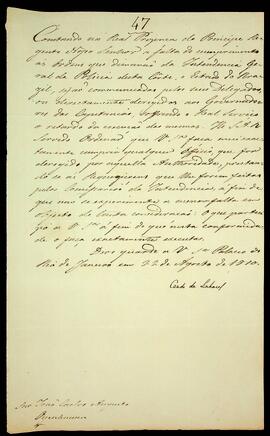 47
Constando na Real Prezença do Principe Re-
gente Nosso Senhor, a falta de cumprimento
ás Ordens que dimanão da Intendencia Ge-
ral da Policia desta Corte, e Estado do Brazil,
sejão communicadas pelos seus Delegados,
ou directamente derigidas aos Governado-
res das Capitanias, soffrendo o Real Serviço
o retardo da execução das mesmas. He S. A. R.
Servido Ordenar que V. Sª faça
cumprir qualquer Officio que for
derigido por aquella Authoridade, prestan-
do-se ás Requisiçoens que lhe forem feitas
pelos da Intendencia, a fim de
que não se experimente a menor falta em
objecto de tanta consideração: O que partici-
po a V. Sª a fim de que nesta conformidade
o faça exactamente executar.
Deos guarde a V. Sª Palacio do
Rio de Janeiro em 22 de Agosto de 1810.
Conde de Linhares
Snr. José Carlos Augusto